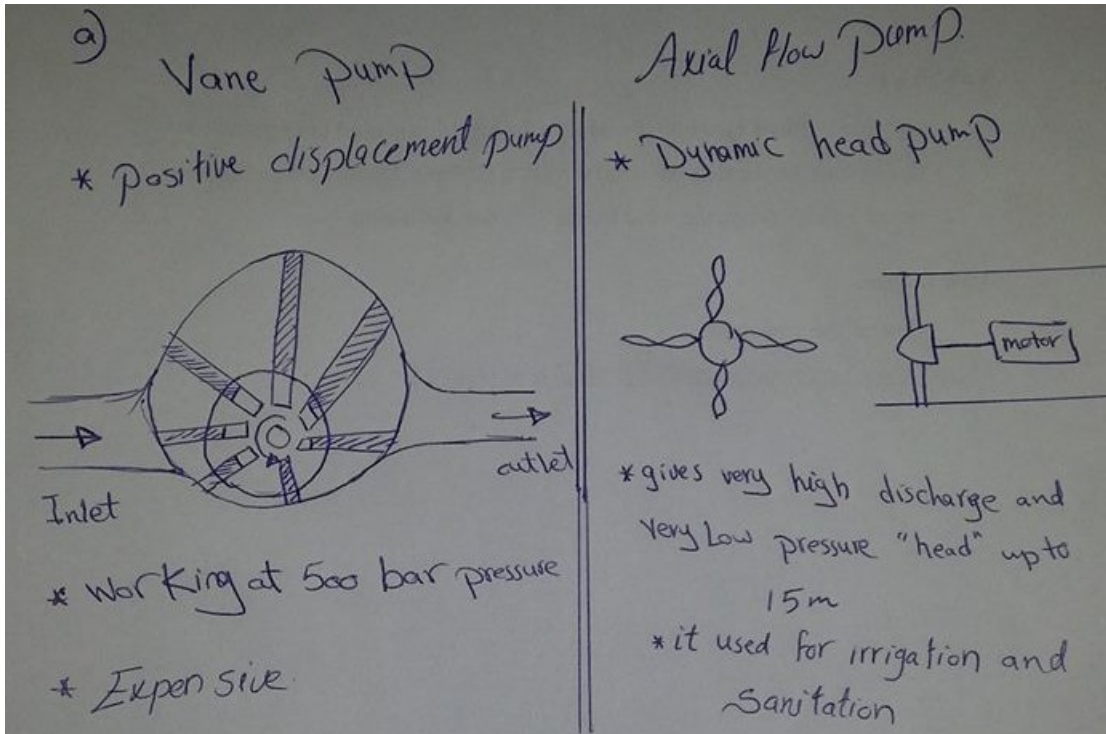 a)
Vane Pump
* Positive displacement pump
Inlet
outlet
* Working at 500 bar pressure
* Expensive
Axial flow pump.
* Dynamic head pump
motor
* gives very high discharge and
Very Low pressure "head" up to
15m
* it used for irrigation and
Sanitation